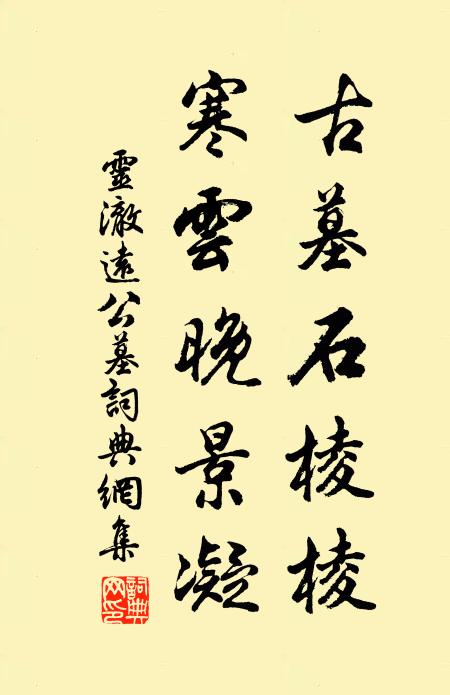 古墓石棱棱
寒雲晚景凝
靈澈遠公墓詞典網集